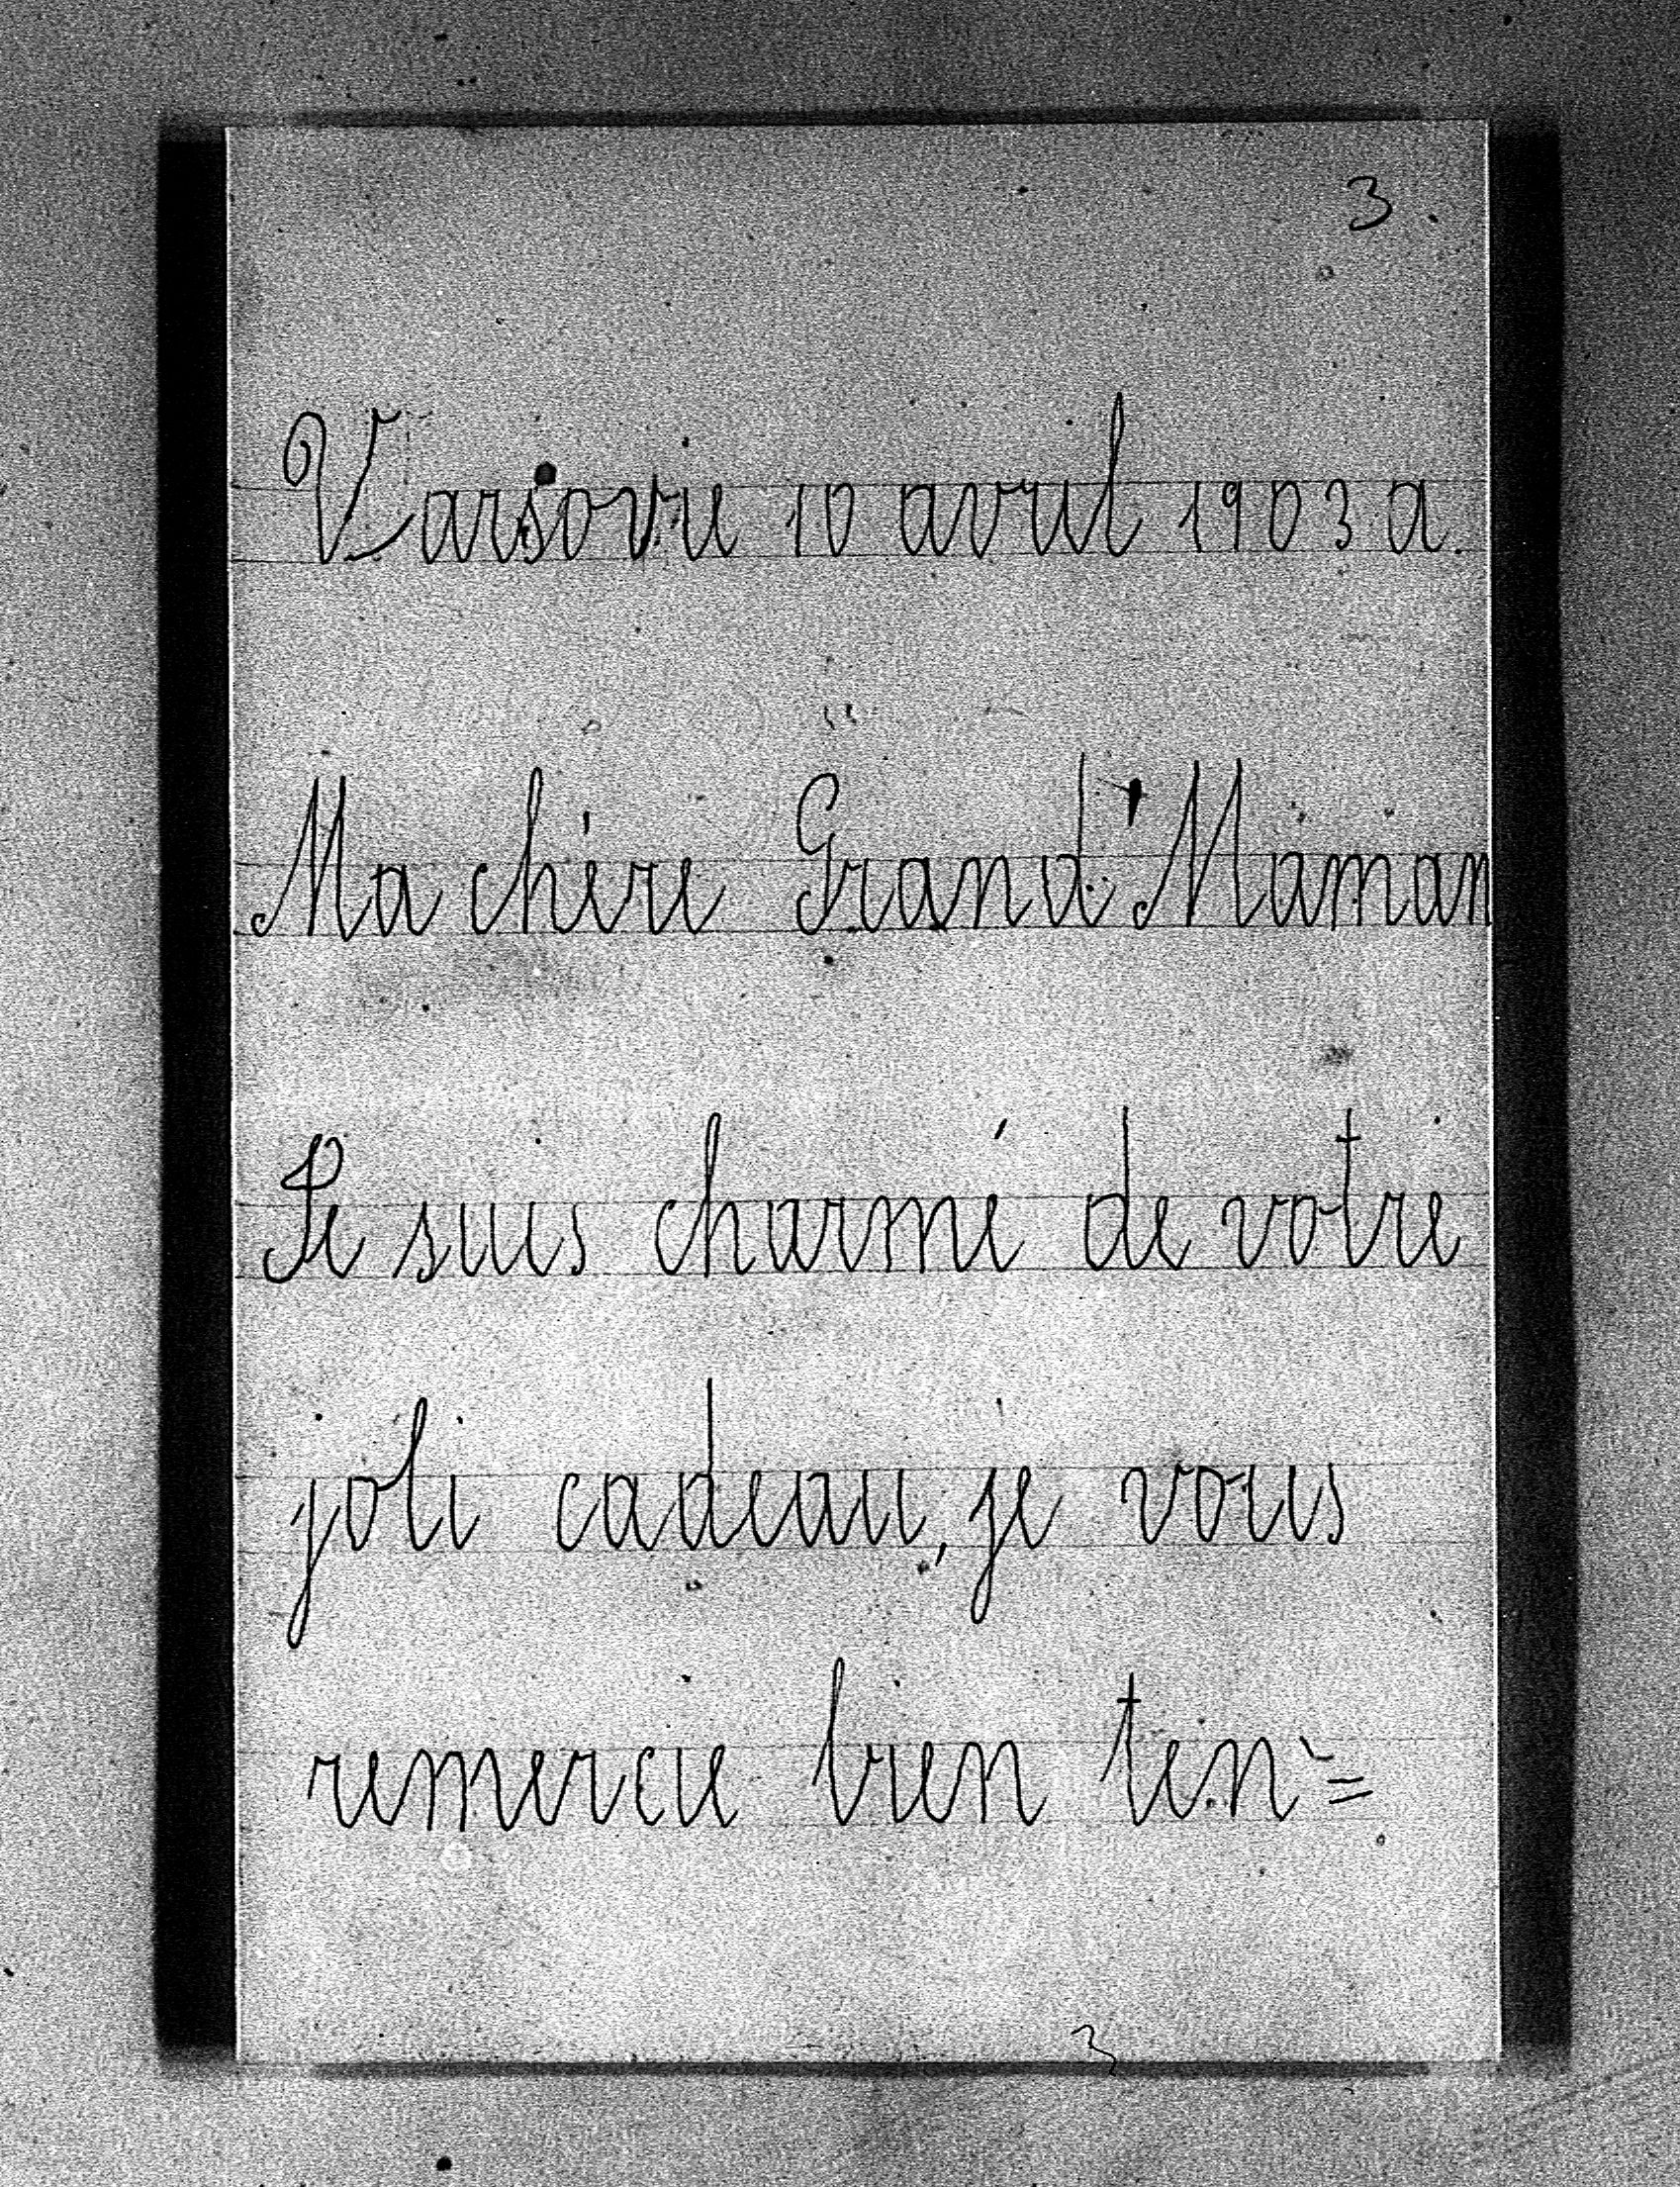 3.
Varsovie 10 avril 1903 a.
Ma chère Grand'Maman
Je suis charmé de votre
joli cadeau, je vous
remercie bien ten=
3